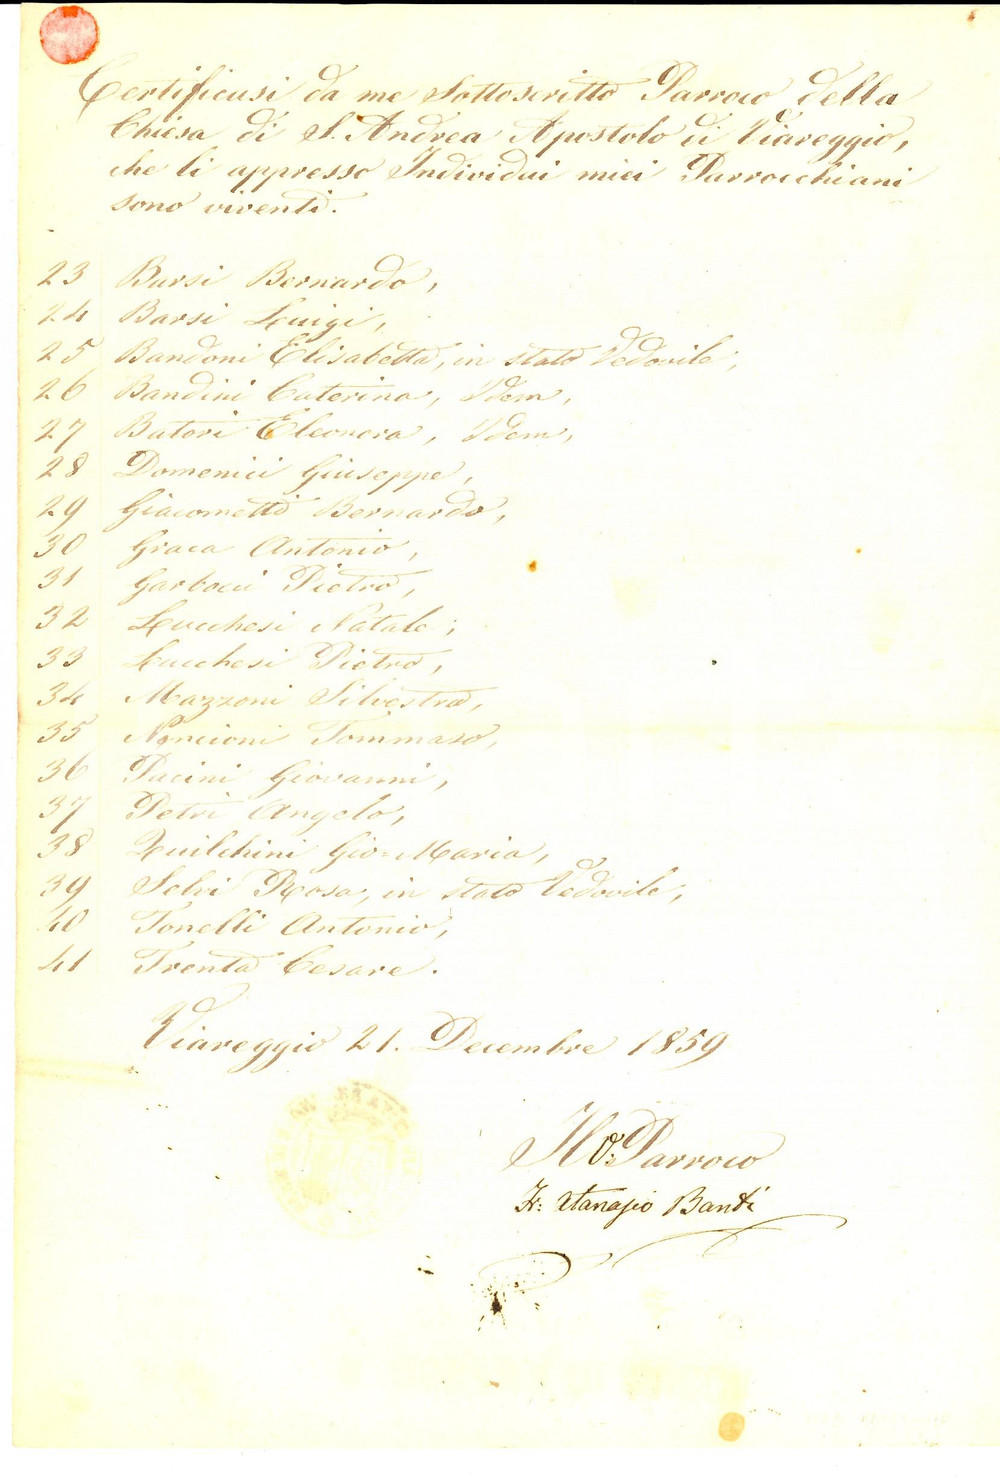 Certificasi da me Sottoscritto Parroco della
Chiesa di S. Andrea Apostolo di Viareggio,
che li appresso Individui miei Parrocchiani
sono viventi.
23 Barsi Bernardo,
24 Barsi Luigi,
25 Bandoni Elisabetta, in stato Vedovile;
26 Bandini Caterina, Idem,
27 Batori Eleonora, Idem,
28 Domenici Giuseppe,
29 Giacometti Bernardo,
30 Giaca Antonio,
31 Garbocci Pietro,
32 Lucchesi Natale;
33 Lucchesi Pietro,
34 Mazzoni Silvestro,
35 Nencioni Tommaso,
36 Pacini Giovanni,
37 Petri Angelo,
38 Quilchini Gio=Maria,
39 Selvi Rosa, in stato Vedovile;
40 Tonelli Antonio,
41 Trenta Cesare.
Viareggio 21. Decembre 1859
Il Parroco
Fr: Atanasio Banti